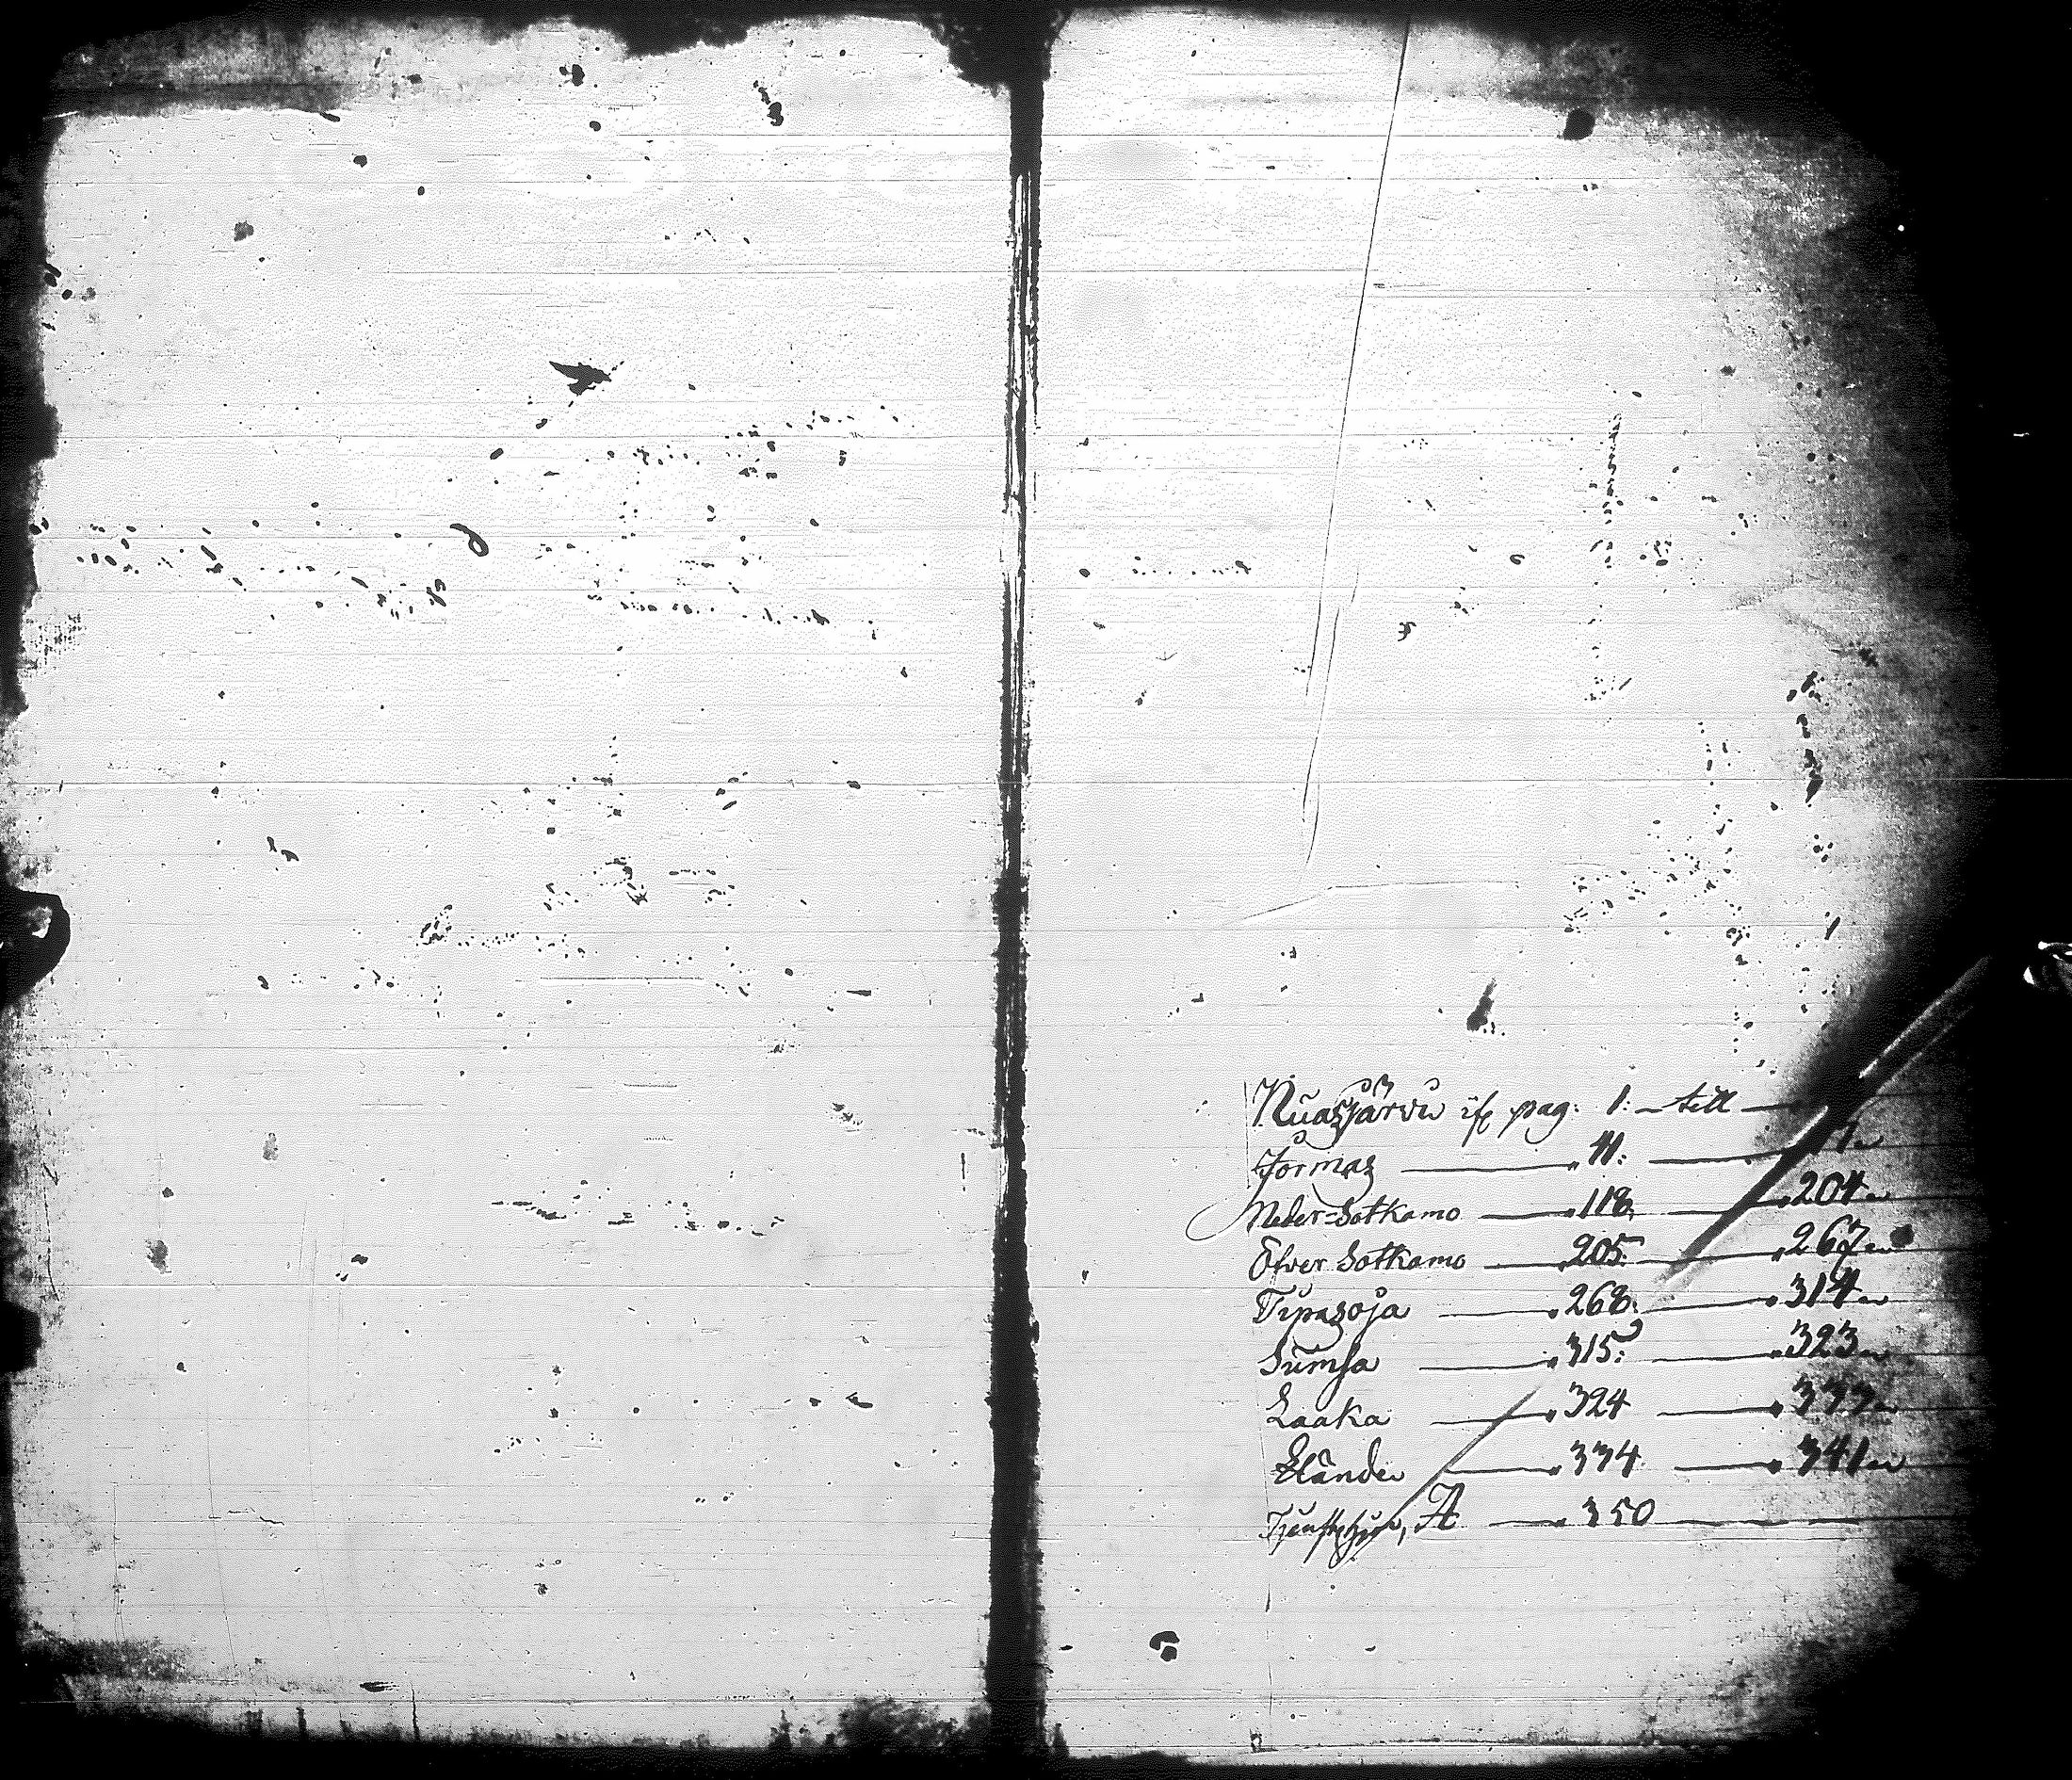 Nuasjärvi ifr. pag: 1: — till —
Jormas — " 41: —
Neder=Sotkamo — " 118: — " 204 "
Öfver Sotkamo — " 205: — " 267 "
Tipasoja — " 268: — " 314 "
Sumsa — " 315: — " 323 "
Laaka — " 324 — " 333 "
— " 334 — " 341 "
A — " 350 —